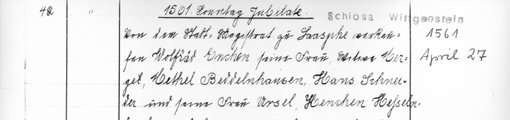 42 " 1561 Sonntag Jubilate.
Schloss Wittgenstein
Von dem Stadt. Magistrat zu Laasphe verkau- 1561
fen Wolfried Enchen seine Frau, Mer- April 27
gel, Methel Beddelnhausen, Hans Schnei-
der und seine Frau Ursel, Henchen Hesseln-